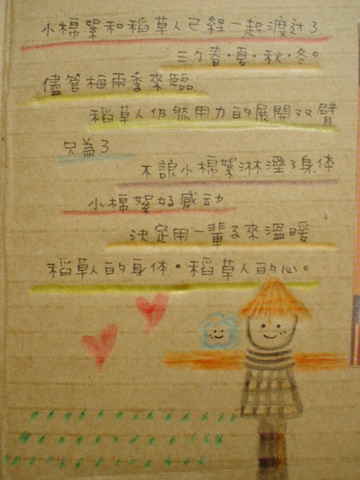 小棉絮和稻草人已經一起渡過了
三个春·夏·秋·冬。
儘管梅雨季來臨
稻草人仍然用力的展開双臂
只為了
不讓小棉絮淋溼了身体
小棉絮好感动
決定用一輩子來溫暖
稻草人的身体。稻草人的心。